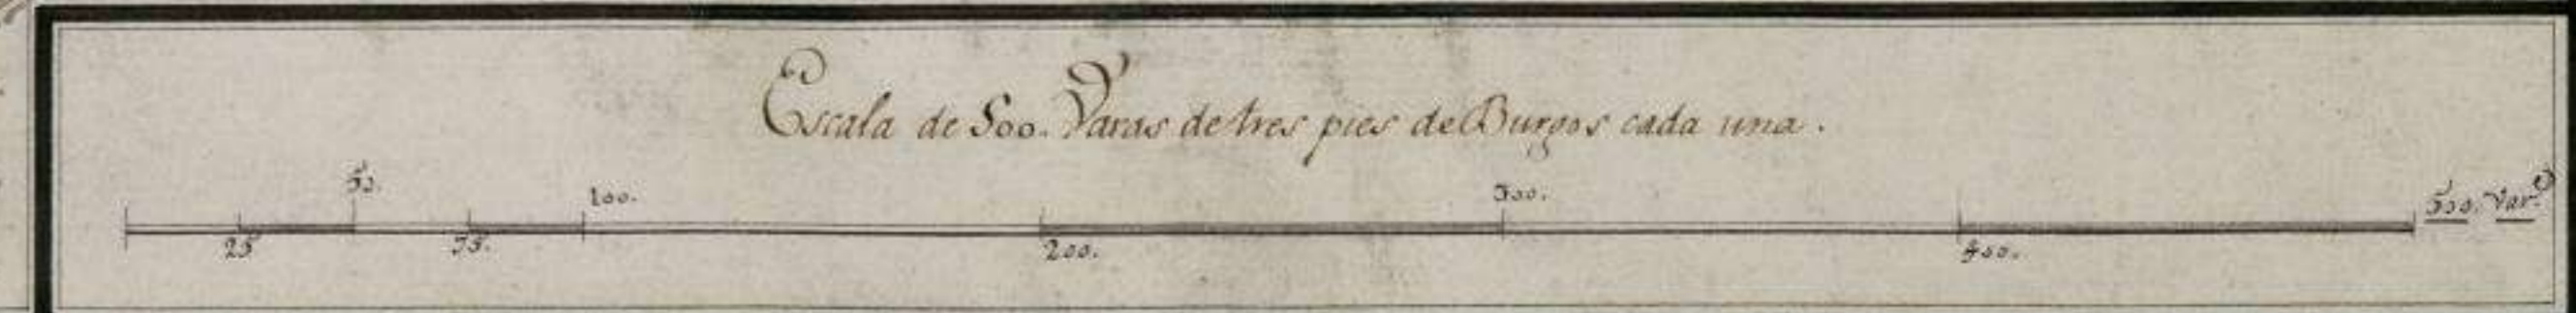 Escala de 500. Varas de tres pies de Burgos cada una.
50. 100. 300. 500. Var.s
25 75. 200. 400.